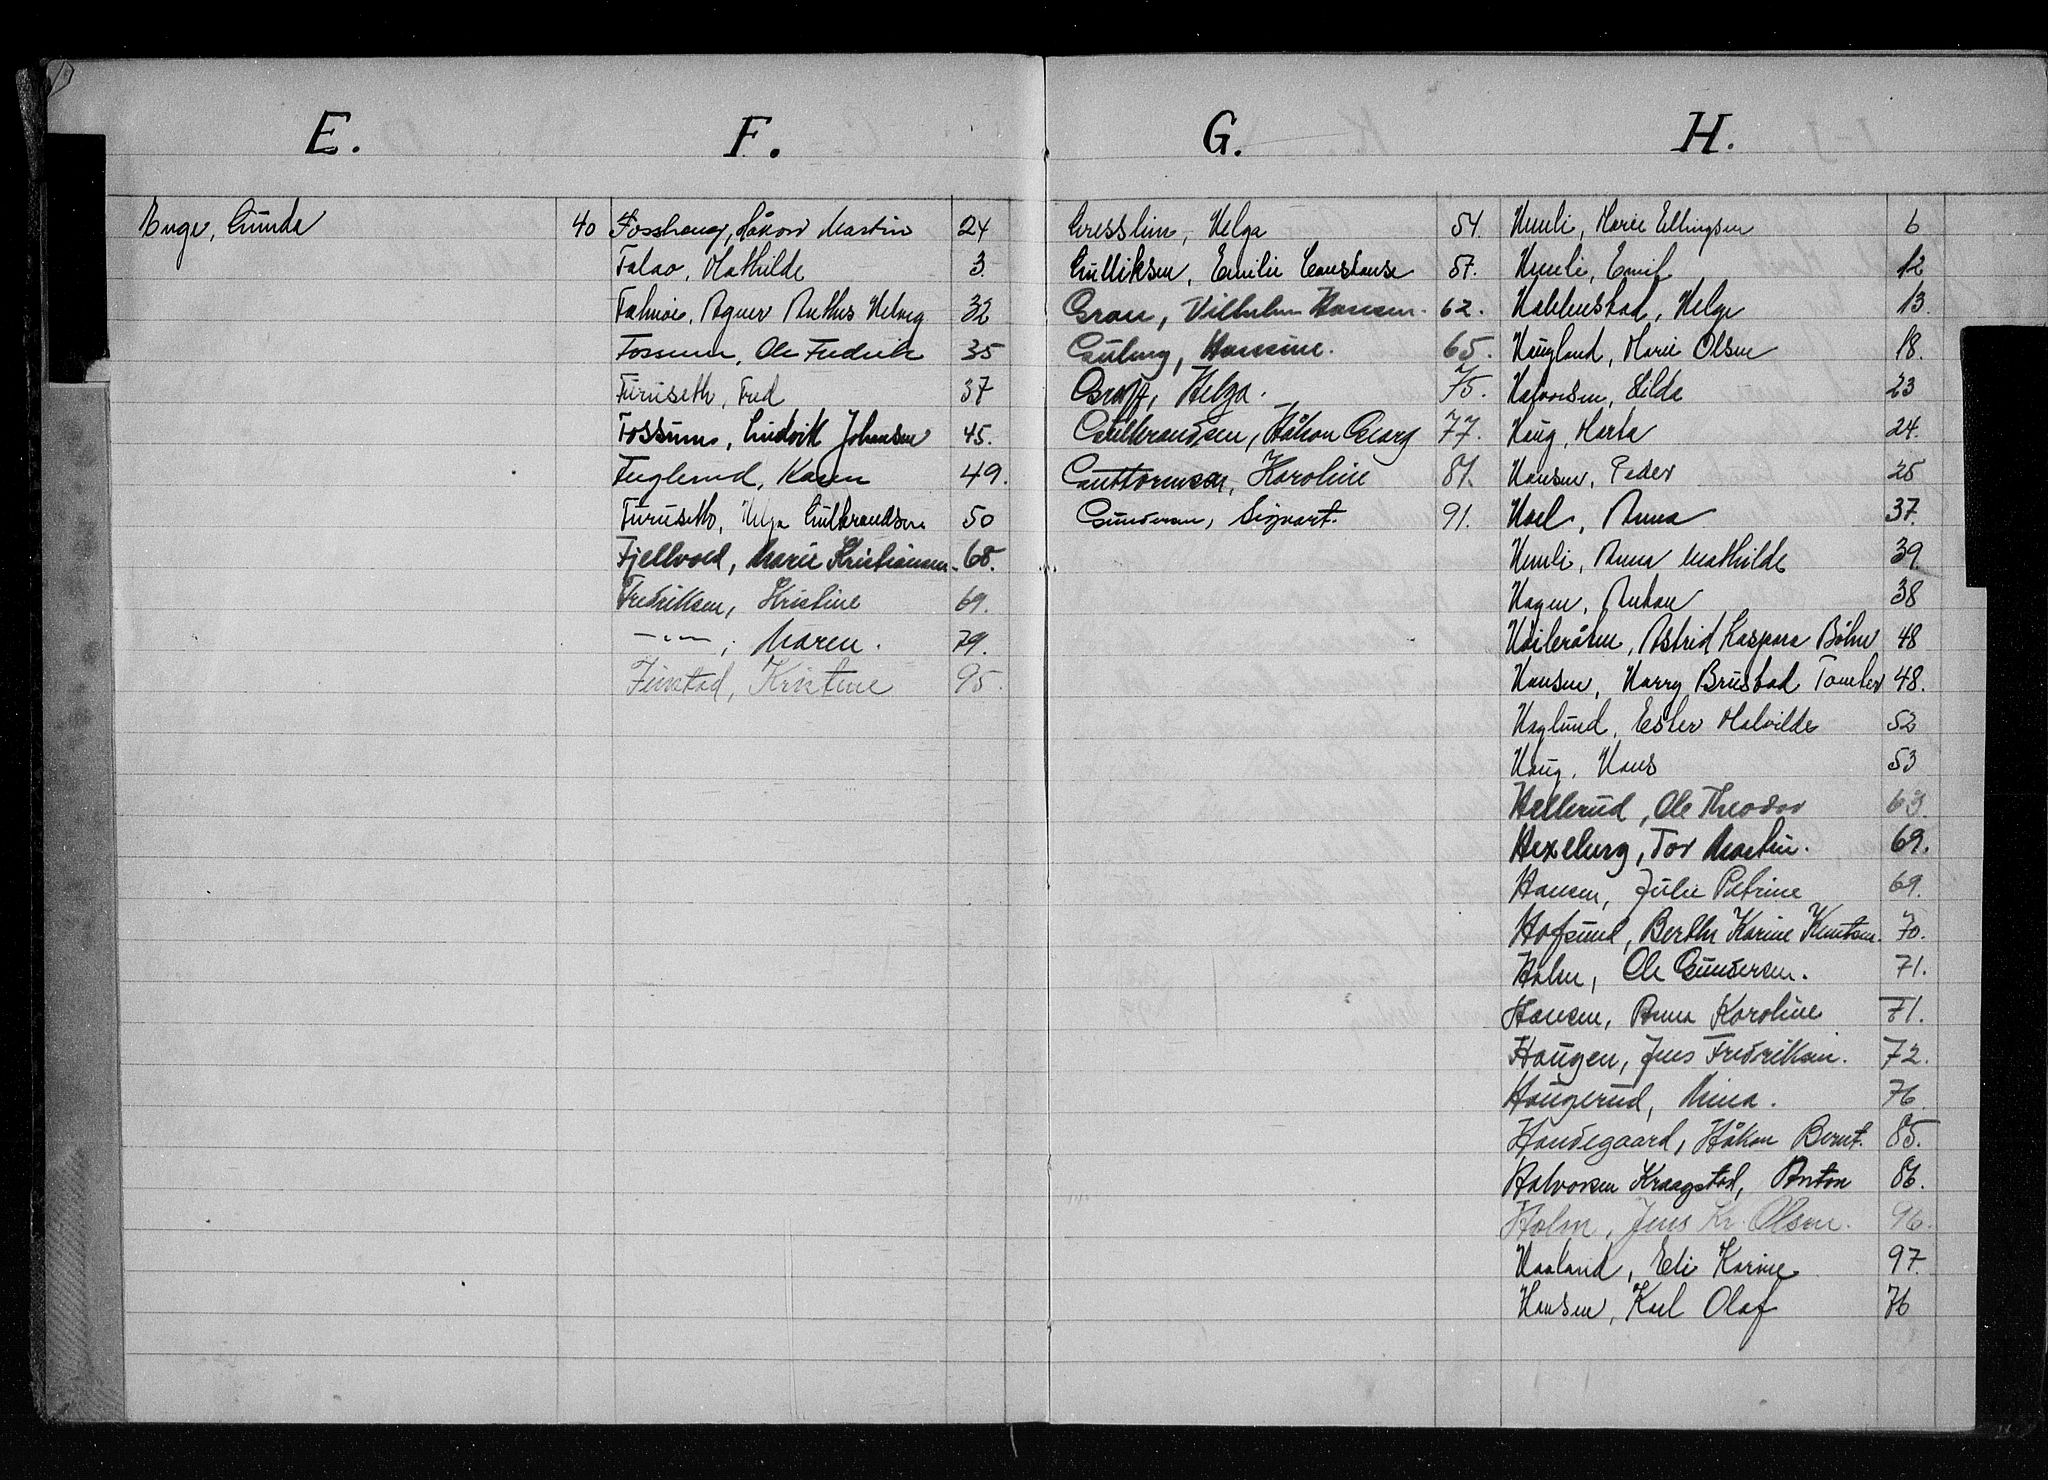 E.
Enge, Gunda 40
F.
Fosshaug, Håkon Martin 24
Falao, Mathilde 3
Agner 32
Fossum, Ole Fredrik 35
Furuseth, Fred 37
Fossum, Ludvik Johansen 45.
Fuglerud, Karen 49.
Furuseth, Helga Gulbrandsen 50
Fjellvold, Marie Kristiansen 68.
Fredriksen, Kristine 69.
—"—, Maren. 79.
Finstad, Kristine 95.
G.
Gresslin, Helga 54.
Gulliksen, Emilie Constanse 57.
Grau, Vilhelm Hansen. 62.
Hansine. 65.
Graff, Helga. 75.
Gulbrandsen, Håkon Georg 77.
Guttormsen, Karoline 81.
Gundersen, Sigvart. 91.
H.
Hemli, Marie Ellingsen 6
Hemli, Emil 12
Habbestad, Helge 13.
Haugland, Marie Olsen 18.
Halvorsen, Hilda 23
Haug, Marta 24.
Hansen, Peder 25
Hoel, Anna 37.
Hemli, Anna Mathilde 39.
Hagen, Anton 38
Astrid Kaspara Bøhn 48
Hansen, Harry Brustad Tomter 48.
Haglund, Ester Malvilde 52
Haug, Hans 53
Hellerud, Ole Theodor 63.
Hexeberg, Tor Martin. 69.
Hansen, Julie Petrine 69.
Hofsund, Berthe Karine Knutsen. 70.
Holm, Ole Gundersen. 71.
Hansen, Anna Karoline 71.
Haugen, Jens Fredriksen. 72.
Haugerud, Mina. 76.
Handegaard, Håkon Bernt. 85.
Halvorsen Kraagstad, Anton 86.
Holm, Jens Kr. Olsen. 96.
Haaland, Eli Karine 97.
Hansen, Karl Olaf 76